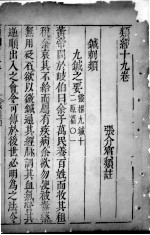 類經十九卷
張介賓類註
鍼刺類
九鍼之要 靈樞九鍼十
二原篇○一
黃帝問於岐伯曰余子萬民養百姓而收其租
稅余哀其不給而屬有疾病余欲勿使被毒藥
無用砭石欲以微鍼通其經脉調其血氣營其
逆順出入之會令可傳於後世必明為之法令